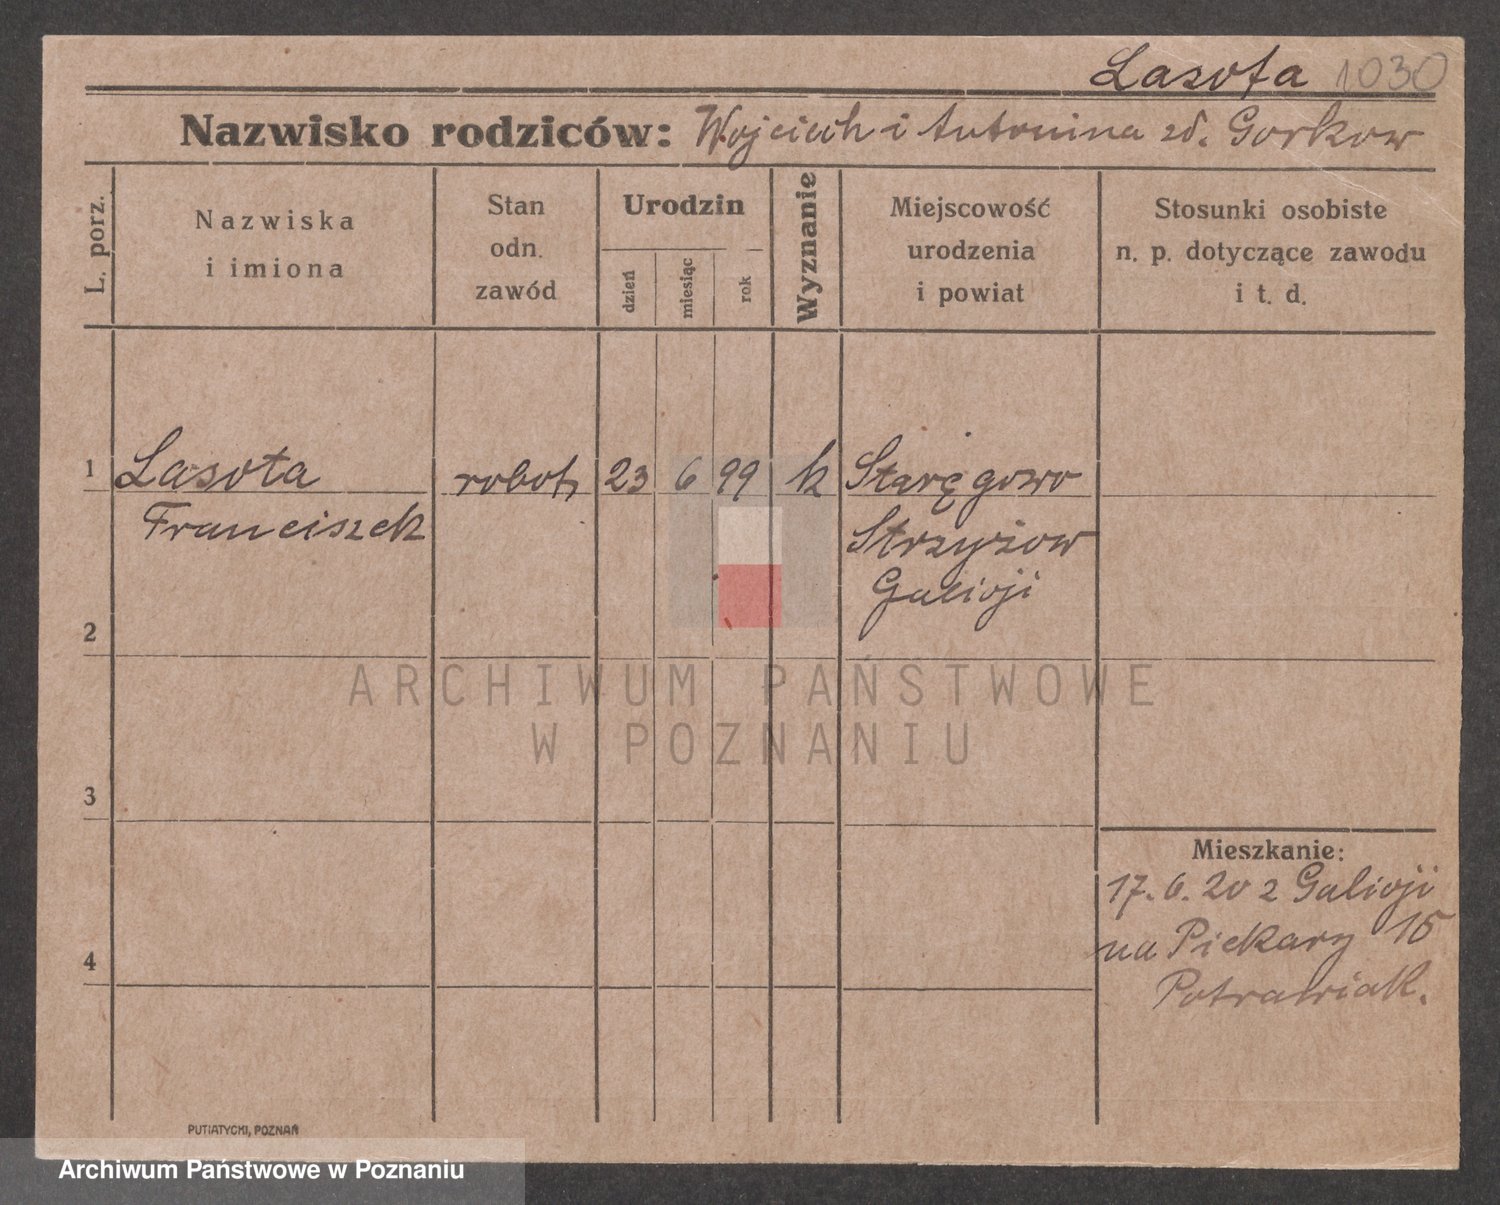 Lasota 1030
Nazwisko rodziców: Wojciech i Antonina zd. Gorkow
L. porz.
Nazwiska
i imiona
Stan
odn.
zawód
Urodzin
dzień
miesiąc
rok
Wyznanie
Miejscowość
urodzenia
i powiat
Stosunki osobiste
n. p. dotyczące zawodu
i t. d.
1 Lasota robot. 23 6 99 k Staręgowo
Franciszek Strzyżow
Galicji
2
ARCHIWUM PAŃSTWOWE
W POZNANIU
3
Mieszkanie:
17. 6. 20 z Galicji
na Piekary 15
4
Potrawiak.
PUTIATYCKI, POZNAŃ
Archiwum Państwowe w Poznaniu